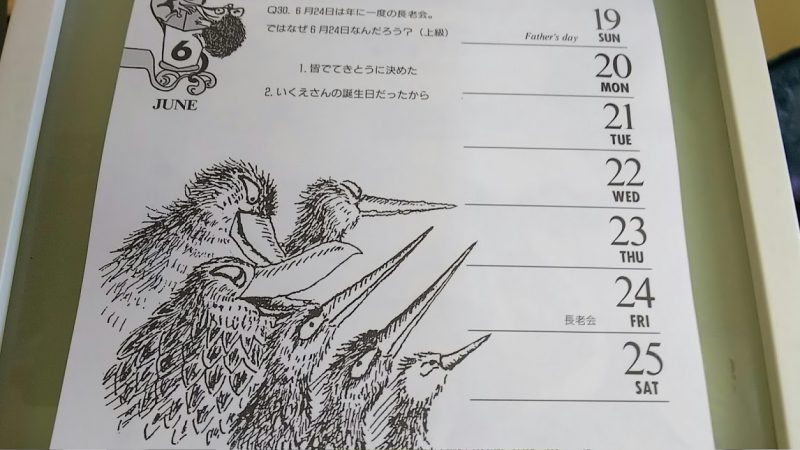 Q30. 6月24日は年に一度の長老会。
ではなぜ6月24日なんだろう？（上級）
1. 皆でてきとうに決めた
2. いくえさんの誕生日だったから
6
JUNE
Father's day
19
SUN
20
MON
21
TUE
22
WED
23
THU
長老会
24
FRI
25
SAT